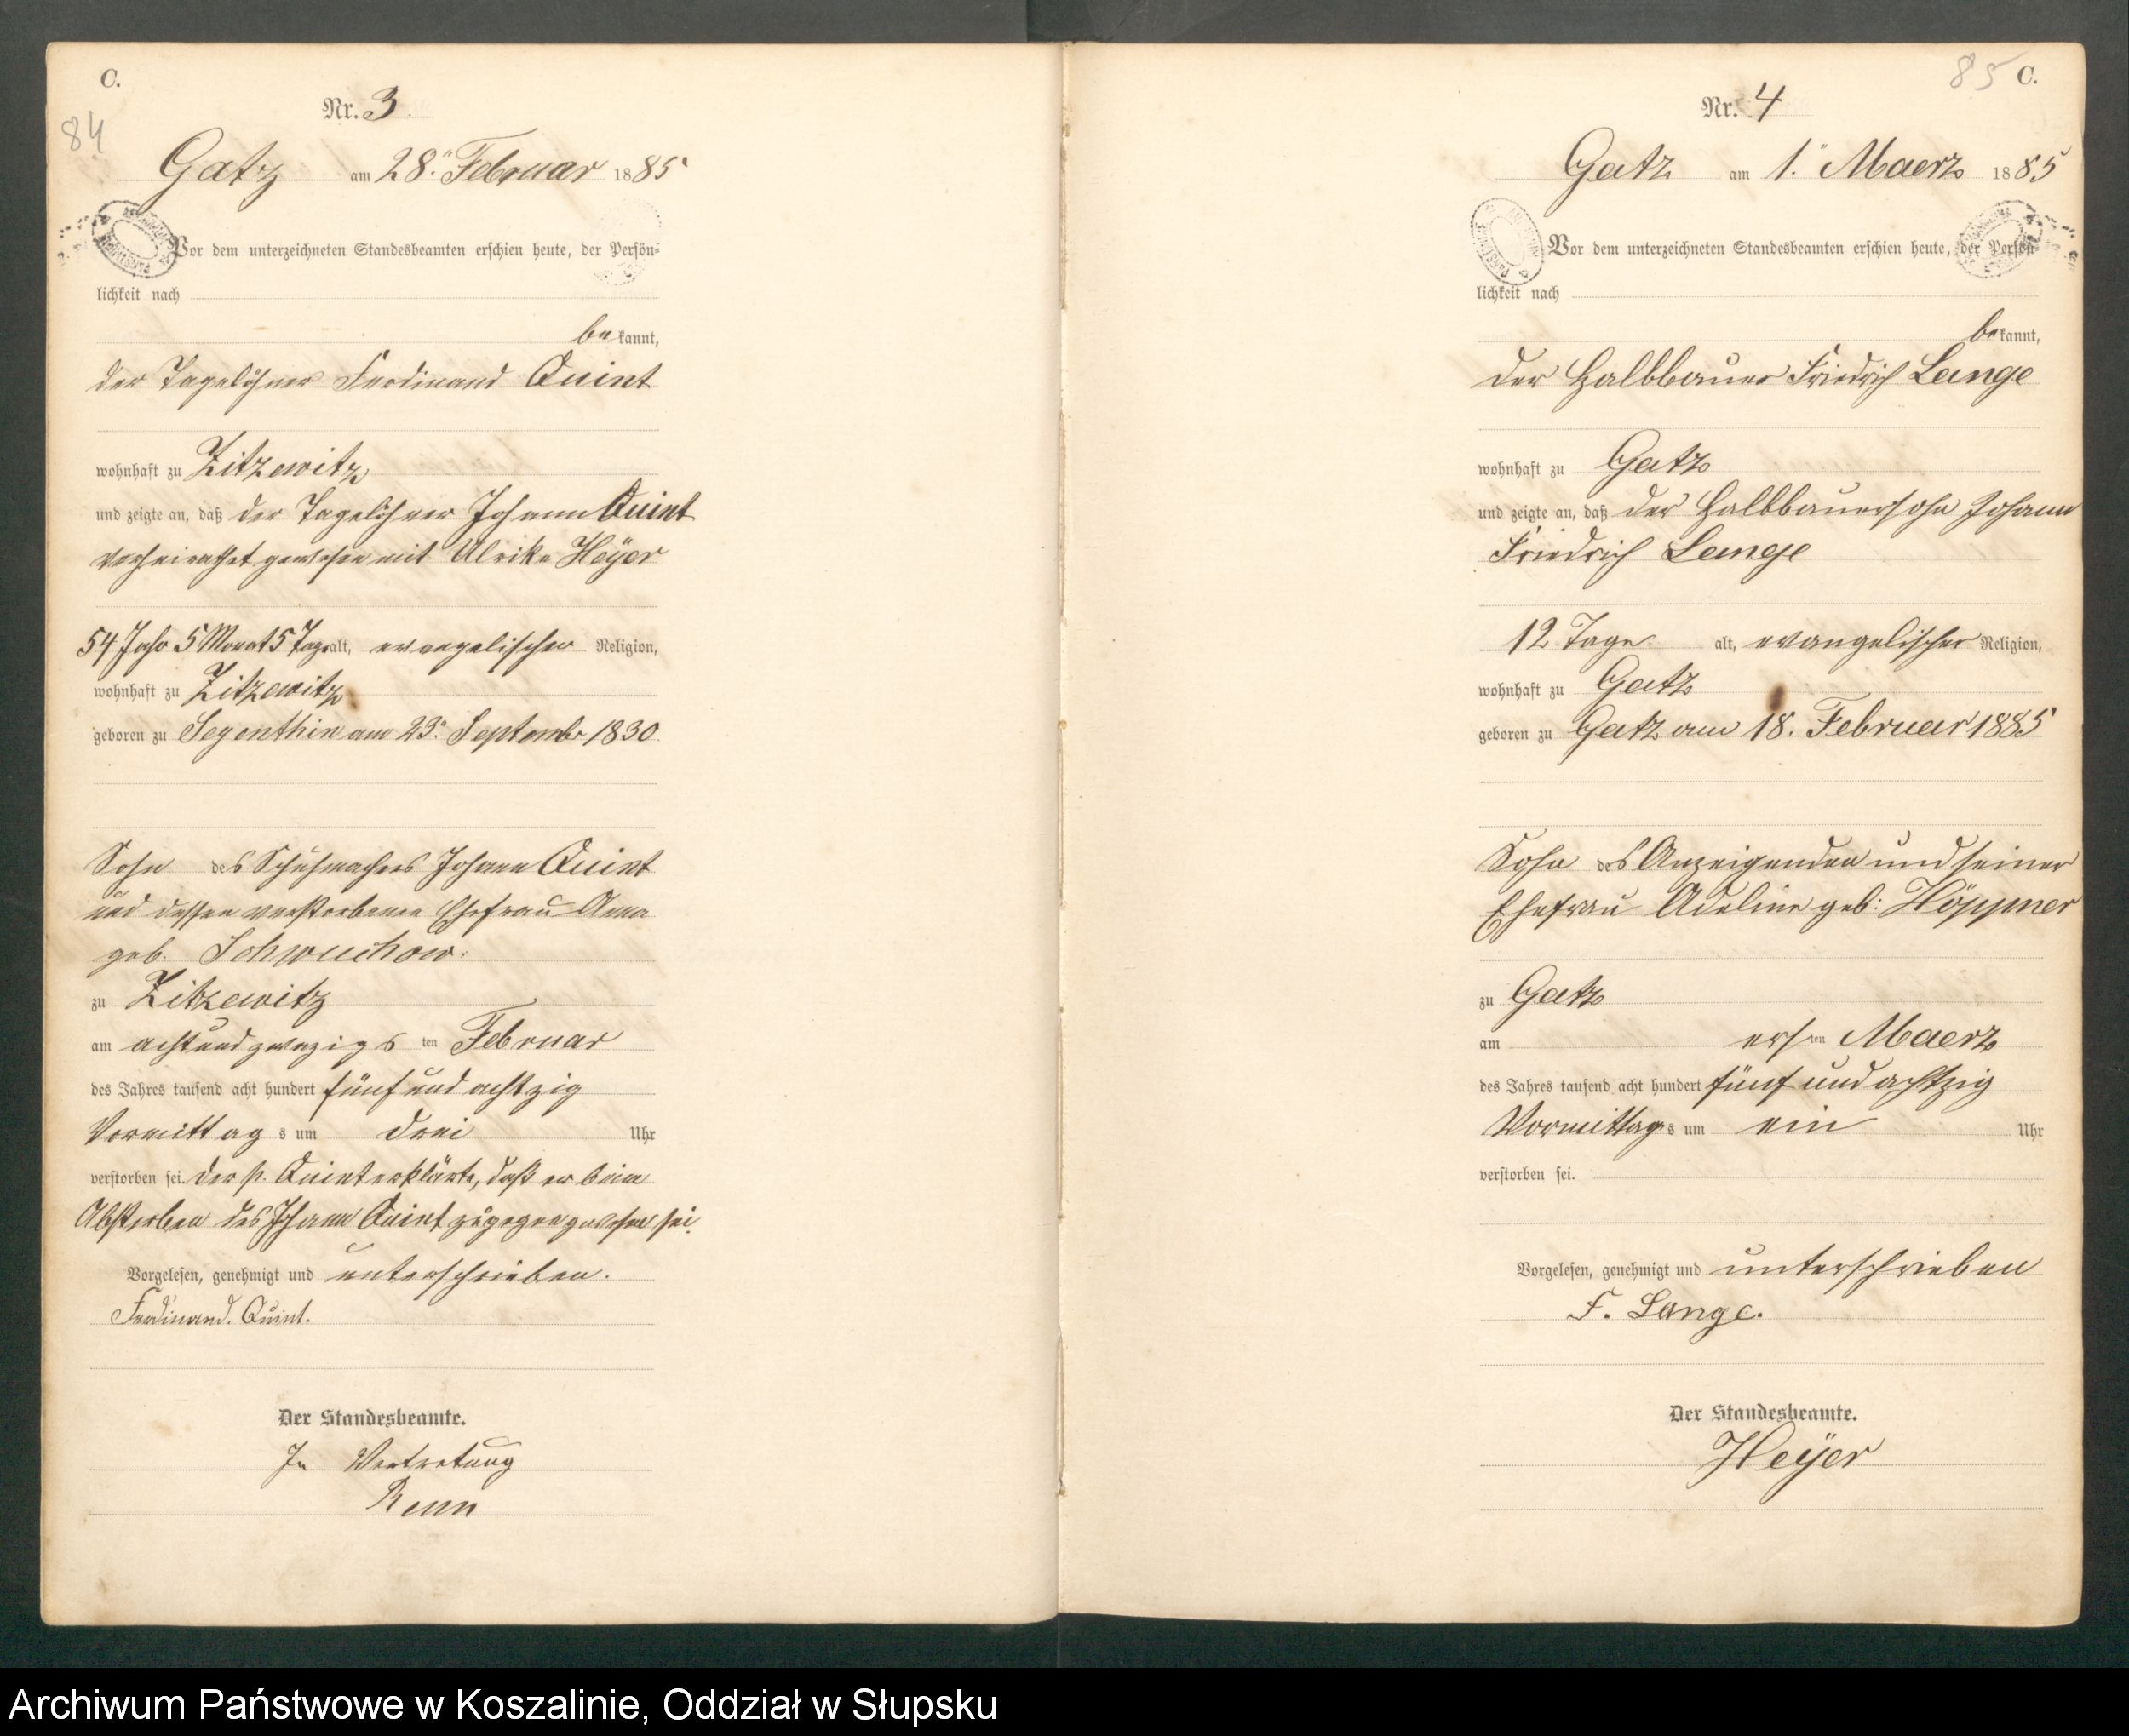 C.
84
Nr. 3
Gatz am 28. Februar 1885
Vor dem unterzeichneten Standesbeamten erschien heute, der Persön-
lichkeit nach
bekannt,
der Tagelöhner Ferdinand Quint
wohnhaft zu Zitzewitz
und zeigte an, daß der Tagelöhner Johann Quint
verheirathet gewesen mit Ulrike Heÿer
54 Jahr 5 Monat 5 Tage alt, evangelischer Religion,
wohnhaft zu Zitzewitz
geboren zu Segenthin am 23. Septembr 1830
Sohn des Schuhmachers Johann Quint
und dessen verstorbenen Ehefrau Anna
geb. Schwuchow.
zu Zitzewitz
am achtundzwanzigsten Februar
des Jahres tausend acht hundert fünf und achtzig
Vormittags um drei Uhr
verstorben sei. Der p. Quint erklärte, daß er beim
Absterben des Johann Quint zugegen gewesen sei.
Vorgelesen, genehmigt und unterschrieben.
Ferdinand. Quint.
Der Standesbeamte.
In Vertretung
85 C.
Nr. 4
Gatz am 1. Maerz 1885
Vor dem unterzeichneten Standesbeamten erschien heute, der Persön-
lichkeit nach
bekannt,
der Halbbauer Friedrich Lange
wohnhaft zu Gatz
und zeigte an, daß der Halbbauersohn Johann
Friedrich Lange
12 Tage alt, evangelischer Religion,
wohnhaft zu Gatz
geboren zu Gatz am 18. Februar 1885
Sohn des Anzeigenden und seiner
Ehefrau Adeline geb: Höppner
zu Gatz
am ersten Maerz
des Jahres tausend acht hundert fünf und achtzig
Vormittags um ein Uhr
verstorben sei.
Vorgelesen, genehmigt und unterschrieben
F. Lange.
Der Standesbeamte.
Heÿer
Archiwum Państwowe w Koszalinie, Oddział w Słupsku